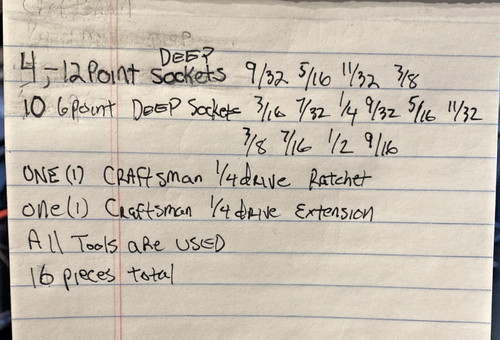 Craftsman
4,-12 Point DEEP Sockets 9/32 5/16 11/32 3/8
10 6 Point DEEP Sockets 3/16 7/32 1/4 9/32 5/16 11/32
3/8 7/16 1/2 9/16
ONE (1) CRAftsman 1/4 dRIVE Ratchet
one (1) CRaftsman 1/4 dRIVE Extension
All Tools aRe USED
16 pieces total